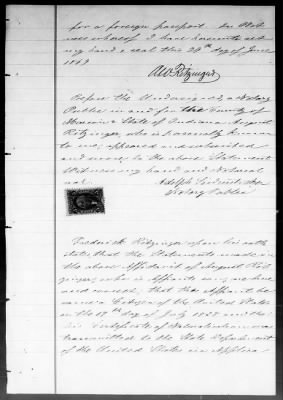 for a foreign passport. In Wit
ness whereof I have hereunto set
my hand & seal this 24th day of June
1869
AW Ritzinger
Before the Undersigned, a Notary
Public in and for the County of
State of Indiana August
Ritzinger, who is personally known
to me, appeared and subscribed
and swore to the above Statement
Witness my hand and Notarial
seal
Adolph
Notary Public
Frederick Ritzinger upon his oath
states that the Statements made in
the above Affidavit of August Rit
zinger, who is Affiant are
and correct, that the Affiant be
came a Citizen of the United States
on the day of July 1858 and the
Certificate of Naturalization was
transmitted to the State Department
of the United States